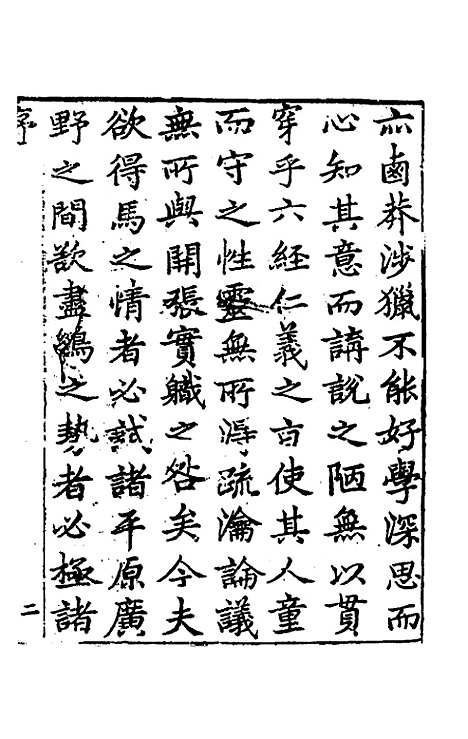 亦鹵莽涉獵不能好學深思而
心知其意而講說之陋無以貫
穿乎六經仁義之言使其人童
而守之性靈無所浮疏瀹論議
無所與開張實職之咎矣今夫
欲得馬之情者必試諸平原廣
野之間欲盡鷂之勢者必極諸
序
二